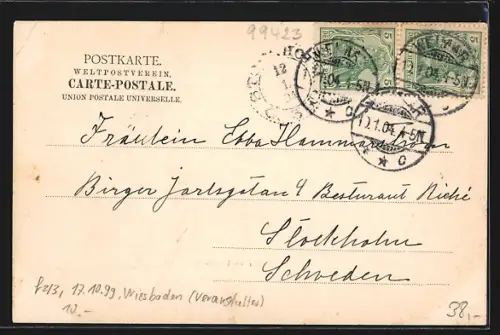 99423
POSTKARTE.
WELTPOSTVEREIN.
CARTE-POSTALE.
UNION POSTALE UNIVERSELLE.
5 5
WEIMAR
04. 4-5N.
12
1
11.1.04. 4-5N.
* * c
Fräulein Ebba Hammarström
Birger Jarlsgatan 9 Restaurant Riche
Stockholm
Schweden
17.10.99, Wiesbaden (Veranstalter)
10.-
38,-